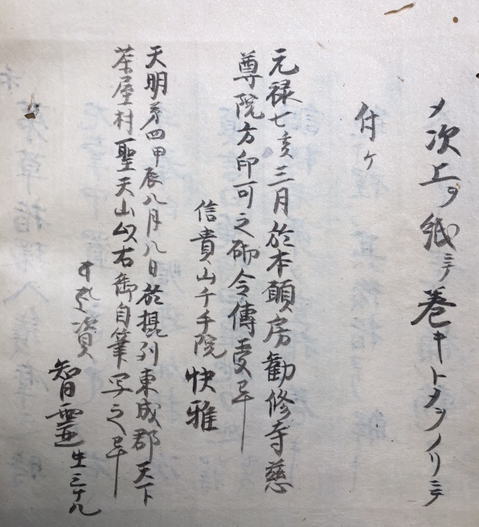 メ次上ヲ紙ニテ巻キトメヲノリニテ
付ケ
元禄七亥三月於本願房勧修寺慈
尊院方印可之砌令傳受畢
信貴山千手院快雅
天明第四甲辰八月八日於摂列東成郡天下
茶屋村聖天山以右御自筆写之畢
資
智霊生三十九